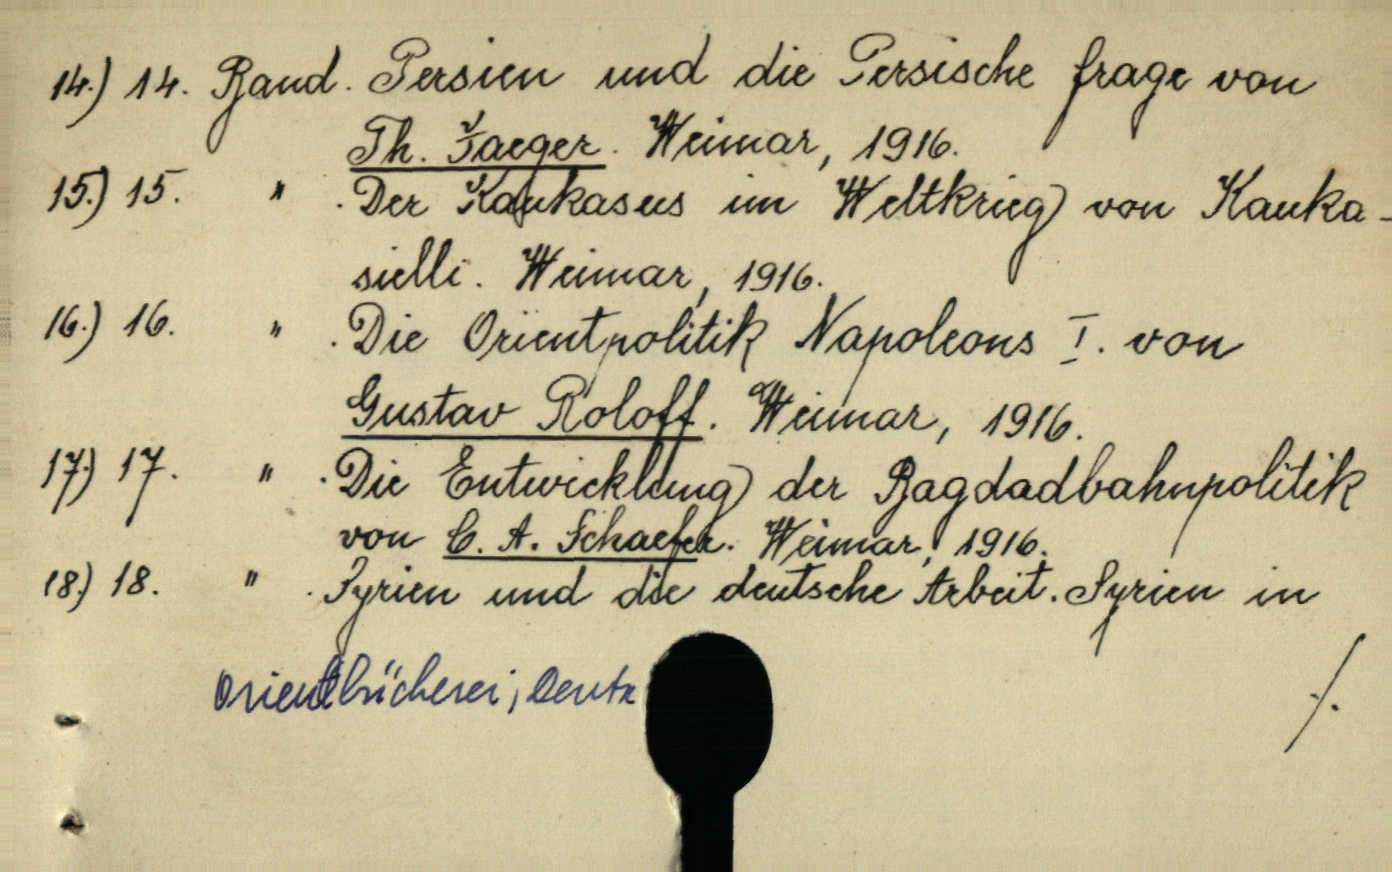 14.) 14. Band. Persien und die Persische frage von
Th. Jaeger. Weimar, 1916.
15.) 15. " . Der Kaukasus im Weltkrieg von Kauka-
sielli. Weimar, 1916.
16.) 16. " . Die Orientpolitik Napoleons I. von
Gustav Roloff. Weimar, 1916.
17.) 17. " . Die Entwicklung der Bagdadbahnpolitik
von C. A. Schaefer. Weimar, 1916.
18.) 18. " . Syrien und die deutsche Arbeit. Syrien in
Orientbücherei, Deuts
./.